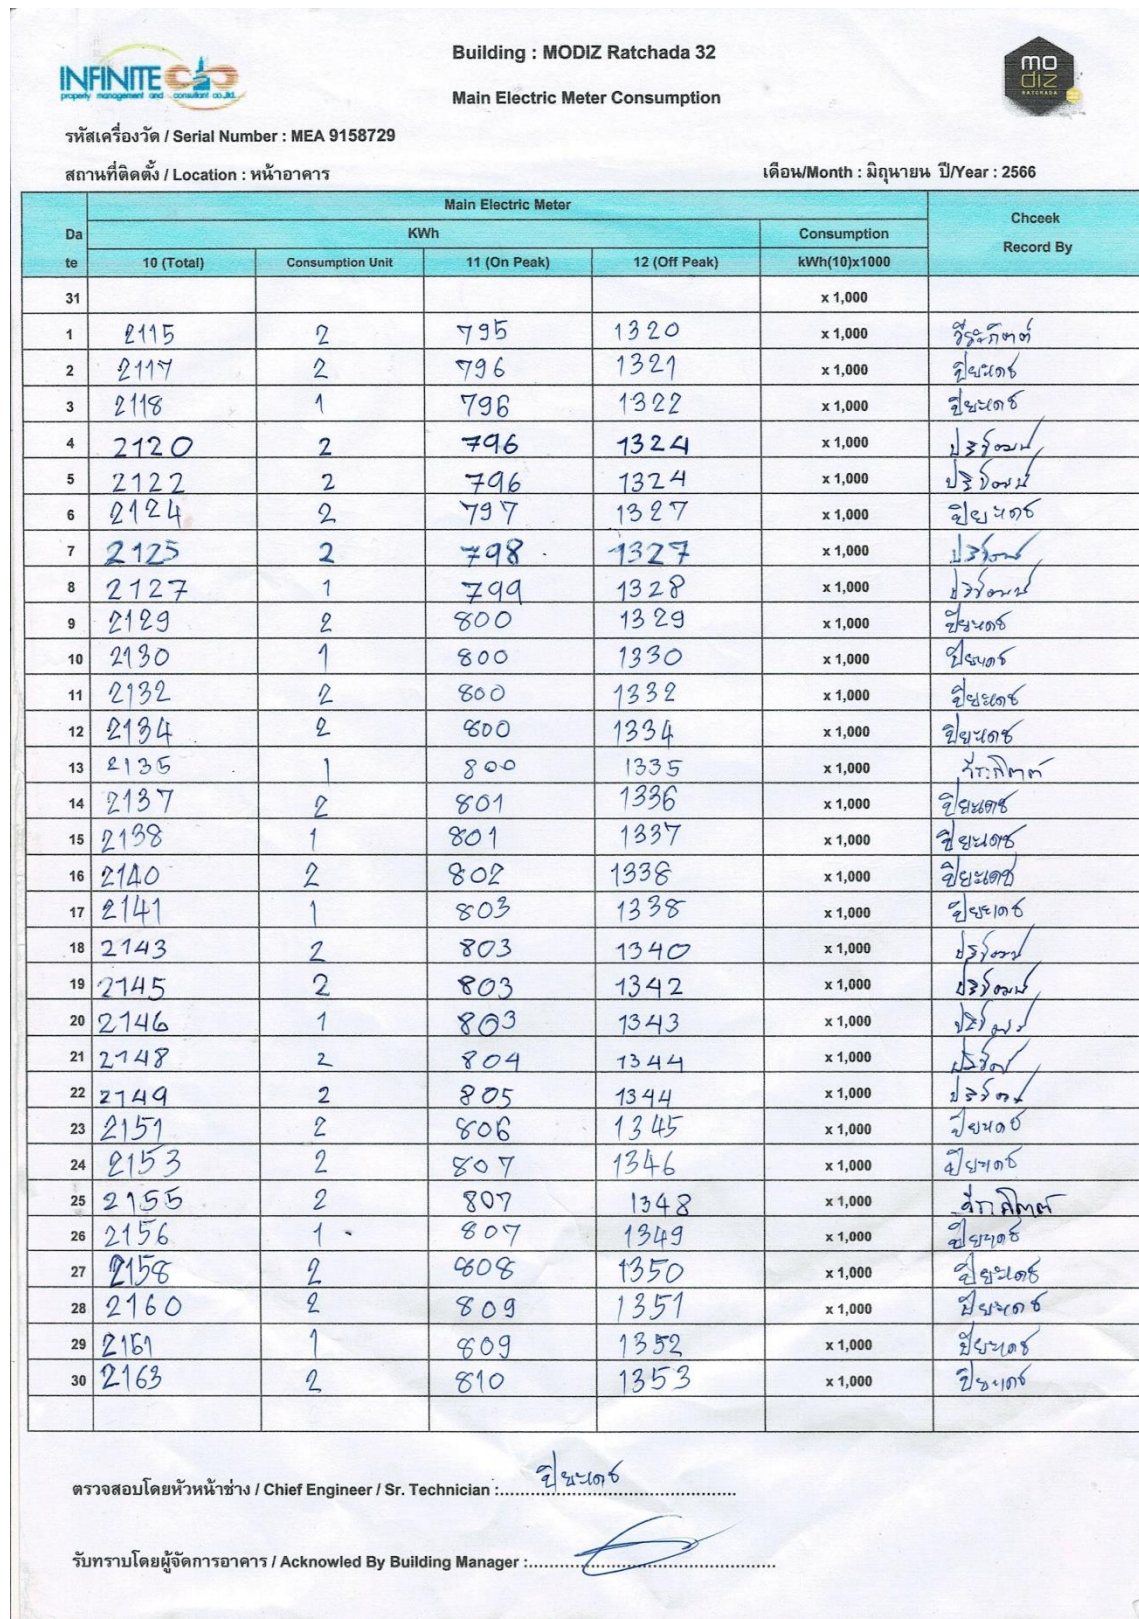 INFINITE
property management and consultant co.,ltd.
Building : MODIZ Ratchada 32
Main Electric Meter Consumption
mo
diz
RATCHADA
รหัสเครื่องวัด / Serial Number : MEA 9158729
สถานที่ติดตั้ง / Location : หน้าอาคาร เดือน/Month : มิถุนายน ปี/Year : 2566
Da
te
Main Electric Meter
KWh
Consumption
Chceek
Record By
10 (Total) Consumption Unit 11 (On Peak) 12 (Off Peak) kWh(10)x1000
31 x 1,000
1 2115 2 795 1320 x 1,000
2 2117 2 796 1321 x 1,000 ปิยะเดช
3 2118 1 796 1322 x 1,000 ปิยะเดช
4 2120 2 796 1324 x 1,000
5 2122 2 796 1324 x 1,000
6 2124 2 797 1327 x 1,000 ปิยะเดช
7 2125 2 798 1327 x 1,000
8 2127 1 799 1328 x 1,000
9 2129 2 800 1329 x 1,000 ปิยะเดช
10 2130 1 800 1330 x 1,000 ปิยะเดช
11 2132 2 800 1332 x 1,000 ปิยะเดช
12 2134 2 800 1334 x 1,000 ปิยะเดช
13 2135 1 800 1335 x 1,000
14 2137 2 801 1336 x 1,000 ปิยะเดช
15 2138 1 801 1337 x 1,000 ปิยะเดช
16 2140 2 802 1338 x 1,000 ปิยะเดช
17 2141 1 803 1338 x 1,000 ปิยะเดช
18 2143 2 803 1340 x 1,000
19 2145 2 803 1342 x 1,000
20 2146 1 803 1343 x 1,000
21 2148 2 804 1344 x 1,000
22 2149 2 805 1344 x 1,000
23 2151 2 806 1345 x 1,000 ปิยะเดช
24 2153 2 807 1346 x 1,000 ปิยะเดช
25 2155 2 807 1348 x 1,000
26 2156 1 807 1349 x 1,000 ปิยะเดช
27 2158 2 808 1350 x 1,000 ปิยะเดช
28 2160 2 809 1351 x 1,000 ปิยะเดช
29 2161 1 809 1352 x 1,000 ปิยะเดช
30 2163 2 810 1353 x 1,000 ปิยะเดช
ตรวจสอบโดยหัวหน้าช่าง / Chief Engineer / Sr. Technician :..... ปิยะเดช
รับทราบโดยผู้จัดการอาคาร / Acknowled By Building Manager :.....